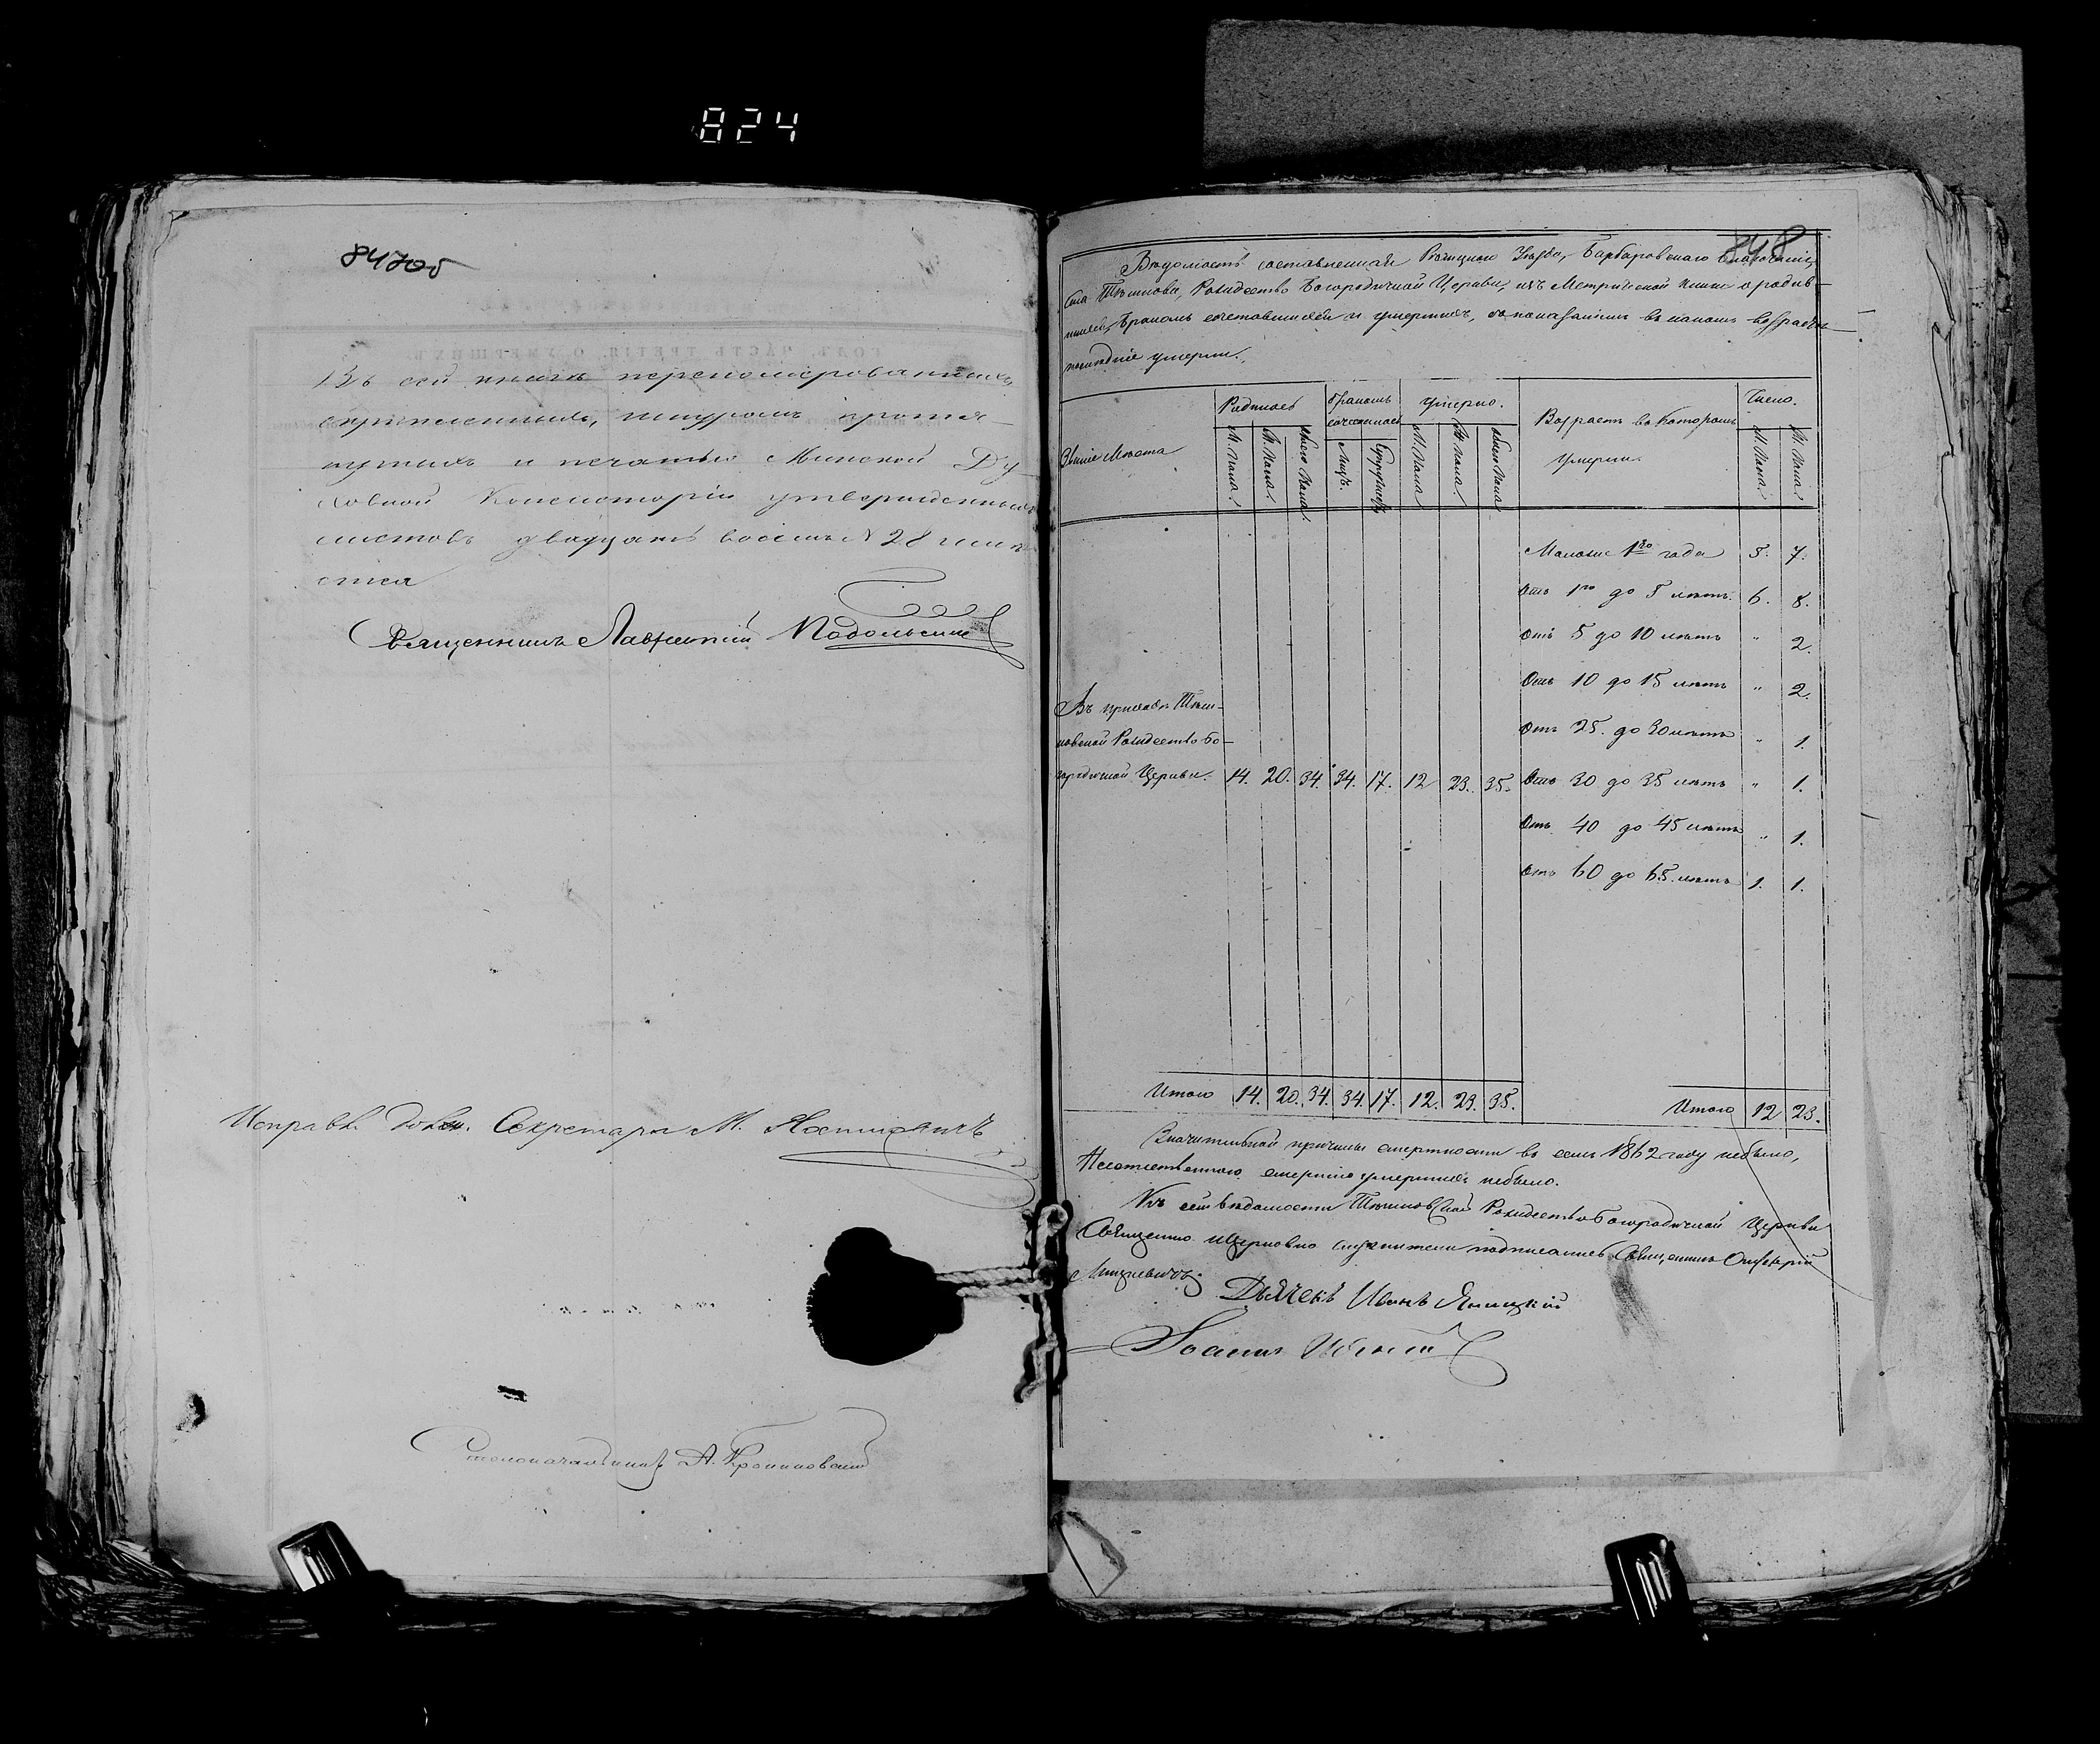 824
847об
Въ сей книгѣ переномерованныхъ,
скрѣпленныхъ, шнуромъ протя-
нутыхъ и печатью Минской Ду-
ховной Консисторіи утвержденныхъ
листовъ двадцать восемь № 28 имѣ-
ется
Священникъ Лаврентій Подольскій
Исправл. долж. Секретаря М.
Столоначальникъ А.
848
Вѣдомость составленная Рѣчицкаго Уѣзда, Барбаровскаго Благочинія,
Села Рождество Богородичной Церкви, изъ Метрической книги о родив-
шихся, Бракомъ сочетавшихся и умершихъ, съ показаніемъ въ какомъ возрастѣ
послѣдніе умерли.
Званіе Мѣста
Родилось
Бракомъ сочеталось
Умерло.
Возрастъ въ которомъ Умерли.
Число.
М. пола.
Ж. пола.
Обоего пола.
Лицъ.
Супружествъ
М. пола
Ж. пола.
Обоего пола
М. пола.
Ж. пола.
Моложе 1го года 5. 7.
Отъ 1го до 5 лѣтъ. 6. 8.
Отъ 5 до 10 лѣтъ " 2.
Отъ 10 до 15 лѣтъ " 2.
Отъ 25. до 30 лѣтъ " 1.
Въ приходѣ
Рождество Бо-
городичной Церкви. 14. 20. 34. 34. 17. 12 23. 35. Отъ 30 до 35 лѣтъ " 1.
Отъ 40 до 45 лѣтъ " 1.
Отъ 60 до 65 лѣтъ 1. 1.
Итого 14. 20. 34. 34. 17. 12. 23. 35. Итого 12 23.
Значительной причины смертности въ семъ 1862 году небыло,
Неестественною смертію умершихъ небыло.
Къ сей вѣдомости Рождество Богородичной Церкви
Священно Церковно служители подписались Священникъ
Дьячекъ Иванъ